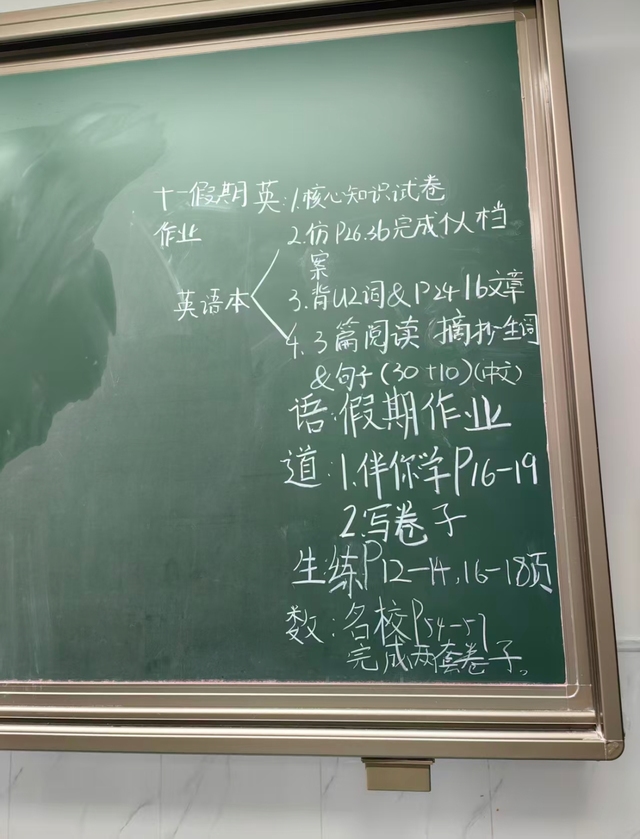 十一假期 英:1.核心知识试卷
作业 2.仿P26.3b完成个人档
案
英语本 3.背U2词&P24 1b文章
4.3篇阅读 摘抄生词
&句子(30+10)(中文)
语:假期作业
道:1.伴你学P16-19
2.写卷子
生:练P12-14,16-18页
数:名校P54-57
完成两套卷子。